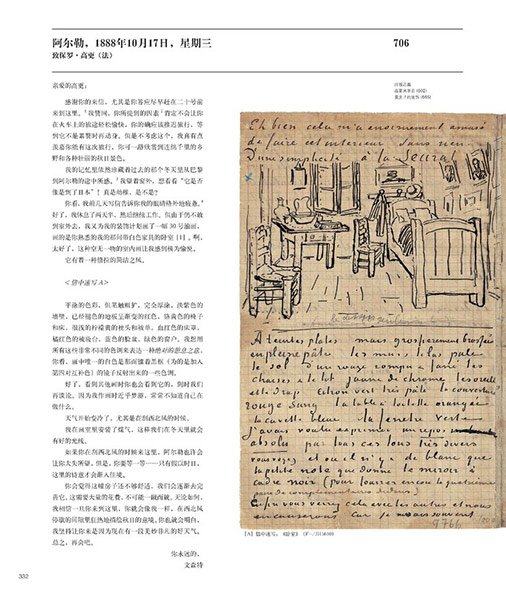 阿尔勒，1888年10月17日，星期三
致保罗·高更（法）
706
亲爱的高更：
感谢你的来信，尤其是你答应尽早赶在二十号前
来到这里。
你在火车上的旅途轻松愉快，你的确应该推迟旅行，等
野和各种壮丽的秋日景色。
我的记忆里依然珍藏着过去的那个冬天里从巴黎
到阿尔勒的途中所感。
像是到了日本”！真是幼稚，是不是？
你看，我前几天写信告诉你我的眼睛格外地疲惫。
好了，我休息了两天半，然后继续工作。但由于仍不敢
到室外去，我又为我的装饰计划画了一幅30号油画，
画的是你熟悉的我的那间带白色家具的卧室
太好了，这种空无一物的室内画让我感到极为愉悦。
它有着一种修拉的简洁之风。
<信中速写A>
平涂的色彩，但笔触粗犷，完全厚涂，淡紫色的
墙壁，已经褪色的地板呈渐变的红色，铬黄色的椅子
和床，很浅的柠檬黄的枕头和被单，血红色的床罩，
橘红色的梳妆台，蓝色的脸盆，绿色的窗户。我想用
所有这些非常不同的色调来表达一种绝对的憩息之意。
你看，画中唯一的白色是那面镶着黑框（为的是加入
第四对互补色）的镜子反射出来的一些色调。
好了，看到其他画时你也会看到它的，到时我们
再谈论。因为我作画时近乎梦游，常常不知道自己在
做什么。
天气开始变冷了，尤其是在刮西北风的时候。
我在画室里安装了煤气，这样我们在冬天里就会
有好的光线。
如果你在刮西北风的时候来这里，阿尔勒也许会
让你大失所望，但是，你要等一等……
这里的诗意才会渐入佳境。
你会觉得这幢房子还不够舒适，我们会逐渐去完
善它，这需要大量的花费，不可能一蹴而就。无论如何，
我相信一旦你来到这里，你就会像我一样，在西北风
停歇的间隙里狂热地描绘秋日的意境，你也就会明白，
我坚持让你来是因为现在有一段美妙非凡的好天气。
总之，再会吧。
你永远的，
文森特
332
Eh bien cela m'a énormément amusé
de faire cet intérieur sans rien
D'une simplicité à la Seurat
A teintes plates mais grossièrement brossées
en pleine pâte les murs lilas pâle
le sol d'un rouge rompu & fané les
chaises & le lit jaune de chrome les oreillers
et le drap citron vert très pâle la couverture
rouge sang la table à toilette orangée
la cuvette bleue la fenêtre verte
j'avais voulu exprimer un repos
absolu par tous ces tons très divers
vous voyez et où il n'y a de blanc que
la petite note que donne le miroir à
cadre noir (pour fourrer encore la quatrième
paire de complémentaires dedans)
Enfin vous verrez cela avec les autres et nous
en causerons car je ne sais souvent
7766
[A] 信中速写：《卧室》